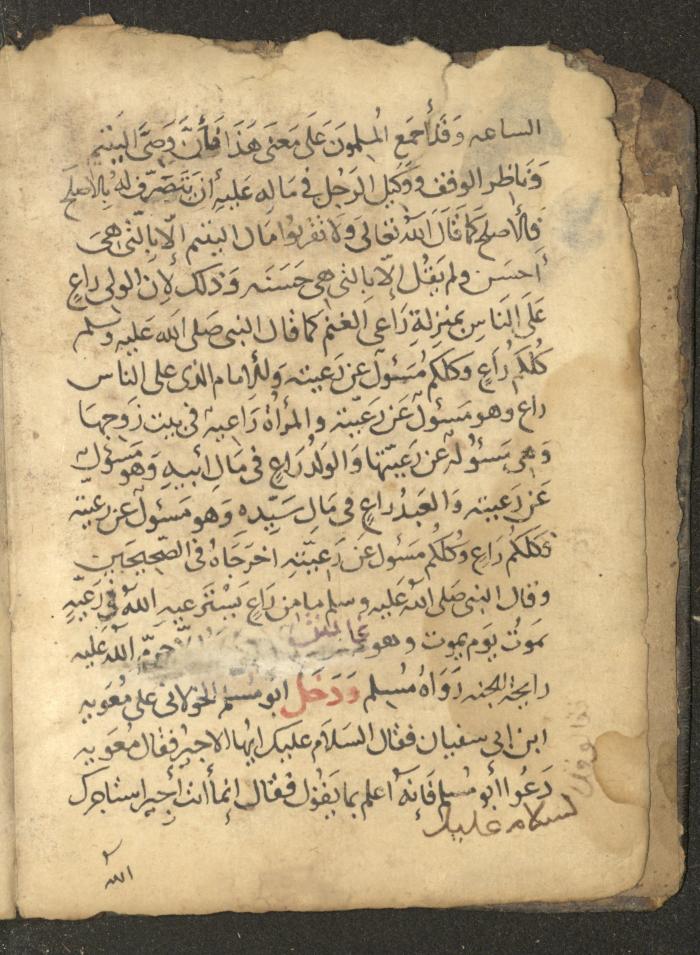 الساعه وَقَد أجمَع المُسلِمونَ عَلَى مَعنَى هَذَا فَأِنَّ وَصِىَّ اليَتِيم
وَنَاظِر الوقف ووكيل الرَجُل في مَالِه عَلَيهِ أن يَتَصَرَّف لَهُ بالأصلَح
فالأصلح كَمَا قَالَ اللَّه تعَالى وَلَا تقرَبُوا مَال اليتيم الّا بِالّتى هىَ
أحسَن ولم يَقُل إلّا بالتى هى حَسَنَه وَذلك لأن الولي رَاعٍ
عَلَى النَاسِ بمنزِلَةِ رَاعى الغَنَم كَمَا قال النبى صَلى الله عَليه وَسلم
كُلُكم رَاعٍ وكلكم مُسَئولٌ عَن رَعيته والأمام الذى على الناس
راع وهو مَسئولٌ عَن رَعيّته والمَرأةُ رَاعِيَة فى بيت زَوجهَا
وَهى مَسئولَةٌ عَن رَعيّتهَا وَالوَلدُ رَاعٍ فى مَال أبيهِ وَهوَ مَسئولٌ
عَن رَعِيته وَالعَبدُ راعٍ فى مَالِ سَيّدِه وَهوَ مَسئولٌ عَن رعيّته
فكلكُم رَاعٍ وَكُلكُم مَسئولٌ عَن رَعِيَّتِهِ اخرَجَاهُ فى الصَّحِيحَين
وقال النبى صَلى اللهُ عَليه وسلم مامن رَاعٍ يَسْتَرعيهِ اللهُ فى رَعِيّةٍ
يَموتُ يَوم يموت وهو غَاشٌّ حرّم اللهُ عَليه
رايحة الجنه رَوَاهُ مُسلِم وَدَخَلَ ابو مُسلم الخولانى على مُعَويه
ابن ابى سفيان فقال السَلَام عليك ايها الاجِيرُ فقال مُعَويه
دَعُوا أبو مُسلم فَإنَّهُ اعلم بما يَقُول فَقال إنمَا أنتَ أجير استاجرك
لسلام عليك
الله